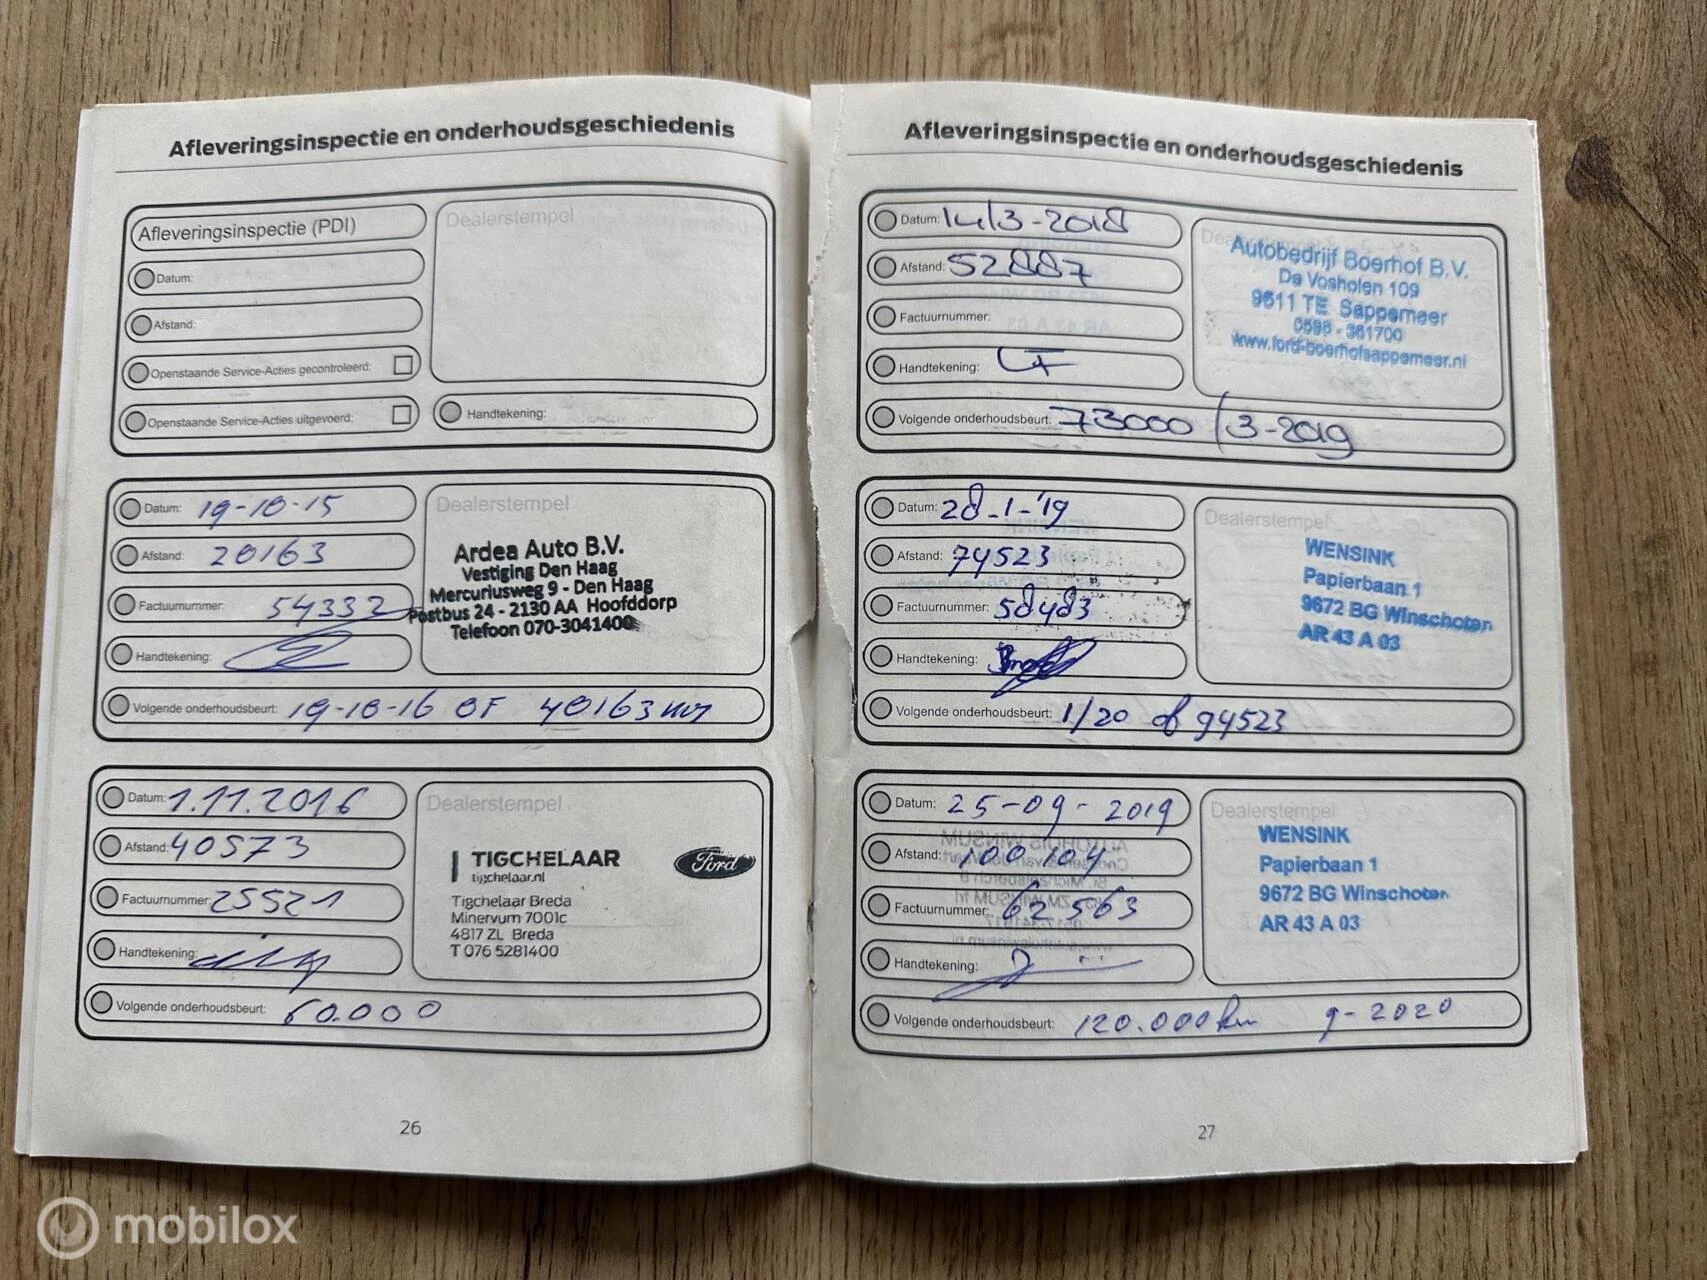 Afleveringsinspectie en onderhoudsgeschiedenis
Afleveringsinspectie (PDI)
Dealerstempel
Datum:
Afstand:
Openstaande Service-Acties gecontroleerd:
Openstaande Service-Acties uitgevoerd:
Handtekening:
Datum: 19-10-15
Dealerstempel
Afstand: 20163
Factuurnummer: 54332
Handtekening:
Ardea Auto B.V.
Vestiging Den Haag
Mercuriusweg 9 - Den Haag
Postbus 24 - 2130 AA Hoofddorp
Telefoon 070-3041400
Volgende onderhoudsbeurt: 19-10-16 OF 40163 km
Datum: 1.11.2016
Dealerstempel
Afstand: 40573
Factuurnummer: 25521
Handtekening:
TIGCHELAAR
tigchelaar.nl
Ford
Tigchelaar Breda
Minervum 7001c
4817 ZL Breda
T 076 5281400
Volgende onderhoudsbeurt: 60.000
26
Afleveringsinspectie en onderhoudsgeschiedenis
Datum: 14/3-2018
Afstand: 52887
Factuurnummer:
Handtekening:
Autobedrijf Boerhof B.V.
De Vosholen 109
9611 TE Sappemeer
0598 - 361700
www.ford-boerhofsappemeer.nl
Volgende onderhoudsbeurt: 73000 / 3-2019
Datum: 28-1-'19
Dealerstempel
Afstand: 74523
Factuurnummer: 58483
Handtekening:
WENSINK
Papierbaan 1
9672 BG Winschoten
AR 43 A 03
Volgende onderhoudsbeurt: 1/20 of 94523
Datum: 25-09-2019
Dealerstempel
Afstand: 100104
Factuurnummer: 62563
Handtekening:
WENSINK
Papierbaan 1
9672 BG Winschoten
AR 43 A 03
Volgende onderhoudsbeurt: 120.000 km 9-2020
27
mobilox